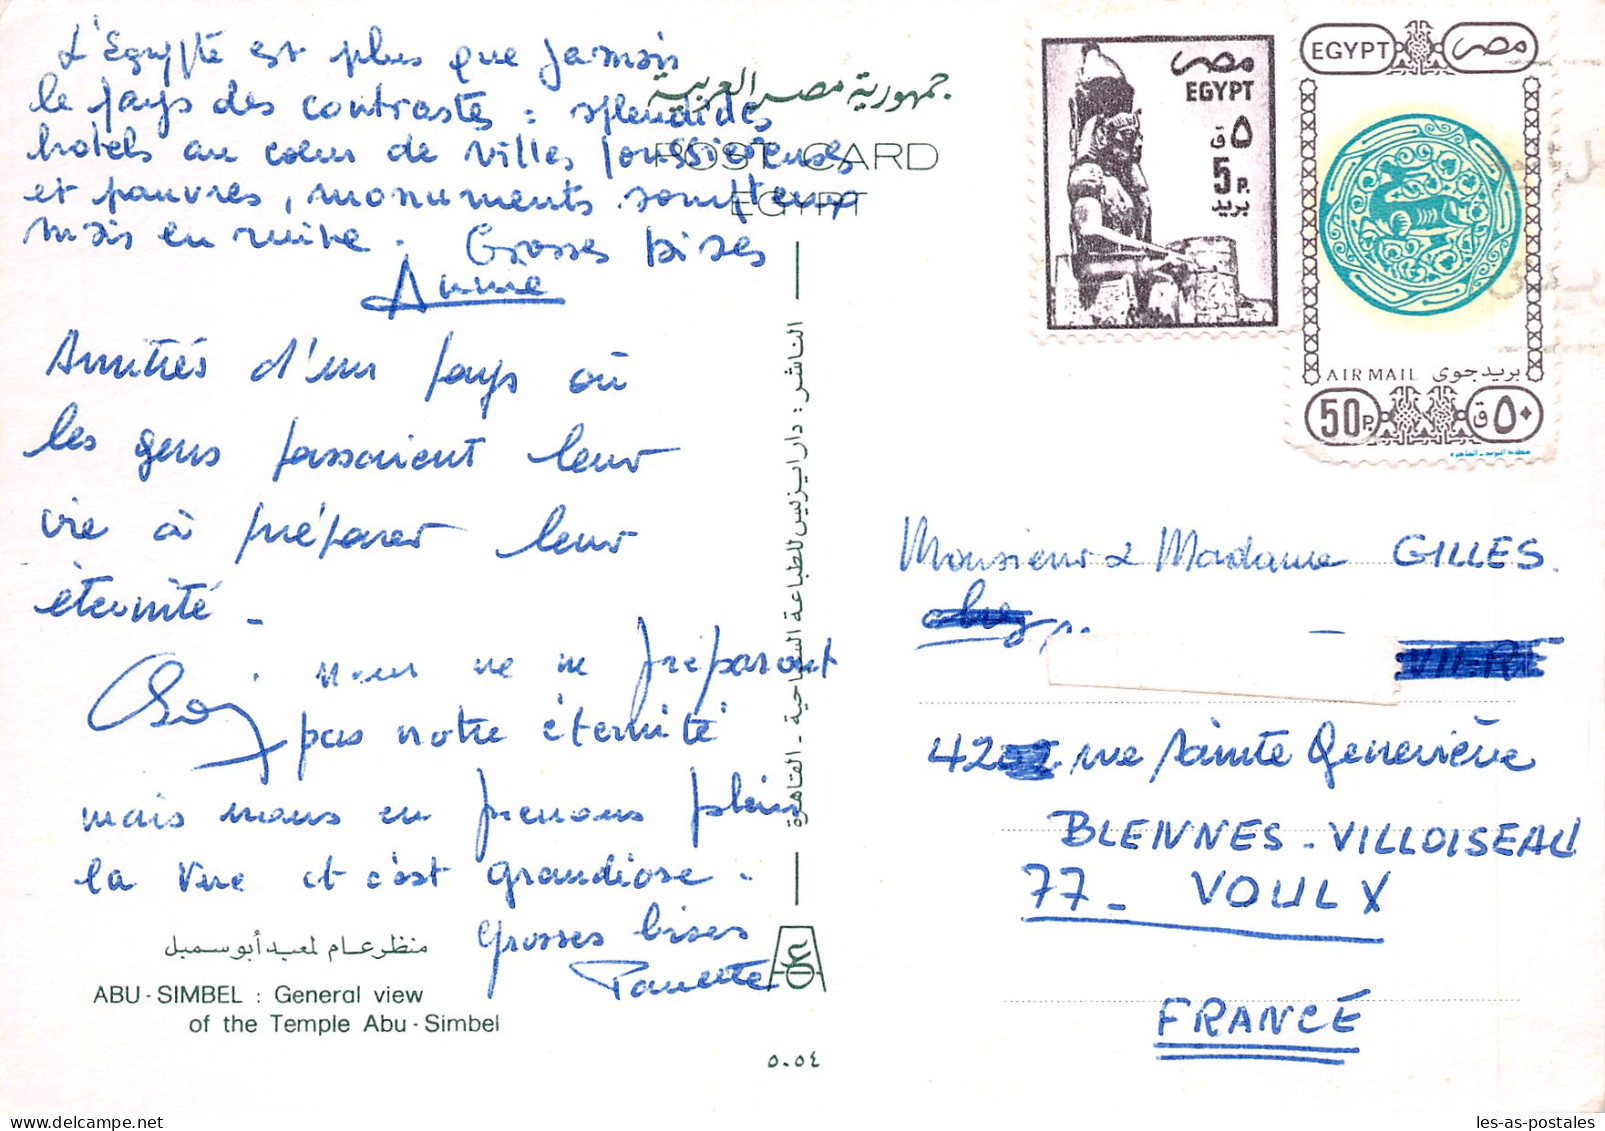 L'Égypte est plus que jamais
le pays des contrastes : splendides
hôtels au coeur de villes poussiéreuses
et pauvres, monuments somptueux
mais en ruine. Grosses bises
Anne
Amitiés d'un pays où
les gens passaient leur
vie à préparer leur
éternité -
Nous ne ne préparont
pas notre éternité
mais nous en prenons plein
la vue et c'est grandiose.
grosses bises
Paulette
منظر عام لمعبد أبو سمبل
ABU - SIMBEL : General view
of the Temple Abu - Simbel
جمهورية مصر العربية
POST CARD
EGYPT
الناشر : دار ايزيس للطباعة السياحية - القاهرة
٥٠٥٤
مصر
EGYPT
٥ ق
5 P.
بريد
EGYPT
مصر
AIR MAIL بريد جوى
50 P.
٥٠ ق
Monsieur & Madame GILLES.
42 rue Sainte Geneviève
BLENNES - VILLOISEAU
77 - VOULX
FRANCE
les-as-postales